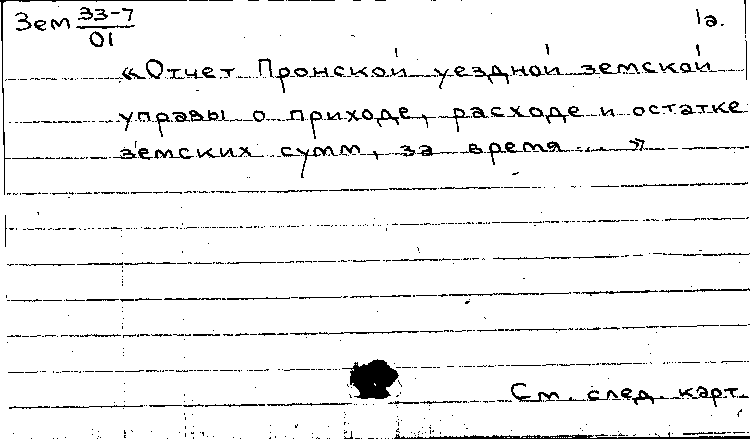 Зем 33-7/01 1а.
«Отчет Пронской уездной земской
управы о приходе, расходе и остатке
земских сумм, за время ... »
См. след. карт.